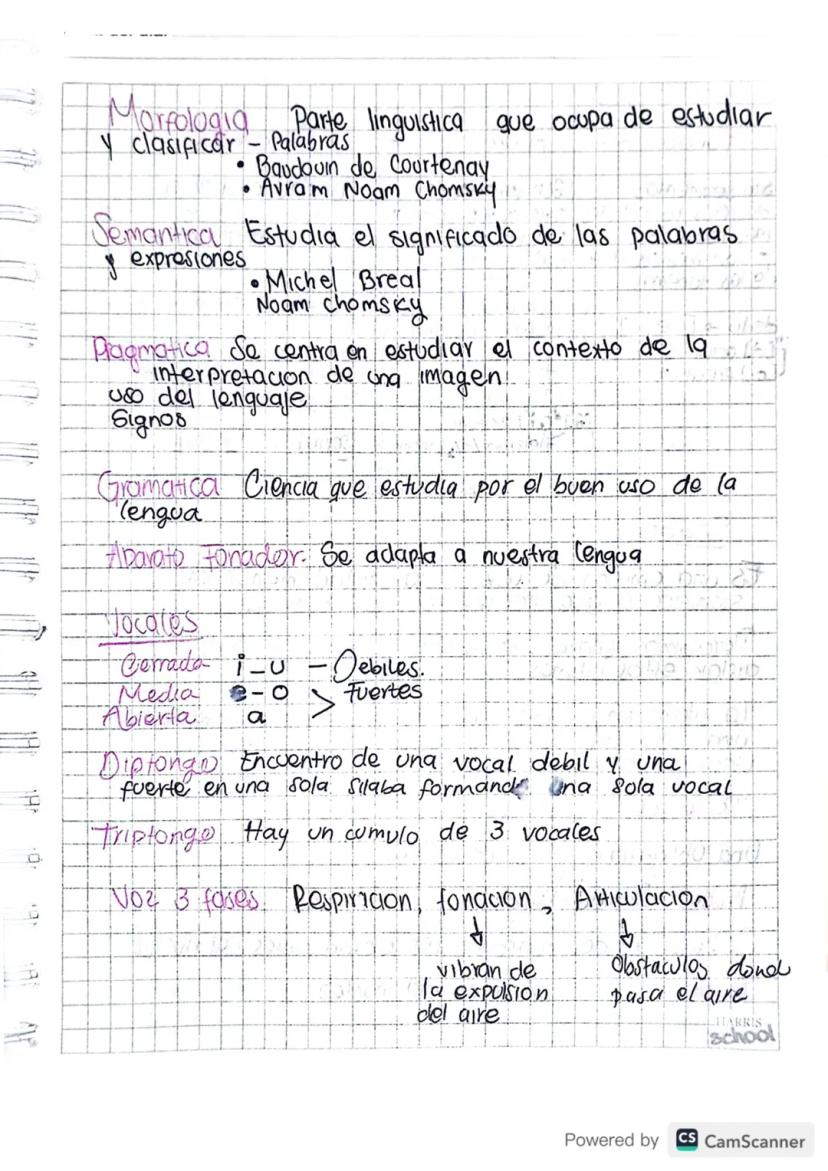 Morfologia Parte linguistica que ocupa de estudiar
y clasificar - Palabras
• Baudouin de Courtenay
• Avram Noam Chomsky
Semantica Estudia el significado de las palabras
y expresiones
• Michel Breal
Noam chomsky
Pragmatica Se centra en estudiar el contexto de la
interpretacion de una imagen
uso del lenguaje
Signos
Gramatica Ciencia que estudia por el buen uso de la
lengua
Aparato Fonador. Se adapta a nuestra lengua
Vocales
Cerrada i-u - Debiles.
Media e-o > Fuertes
Abierta a
Diptongo Encuentro de una vocal debil y una
fuerte en una sola silaba formando una sola vocal
Triptongo Hay un cumulo de 3 vocales
Voz 3 fases Respiricion, fonacion, Articulacion
↓ ↓
vibran de Obstaculos dond
la expulsion pasa el aire
del aire
HARRIS
school
Powered by CS CamScanner